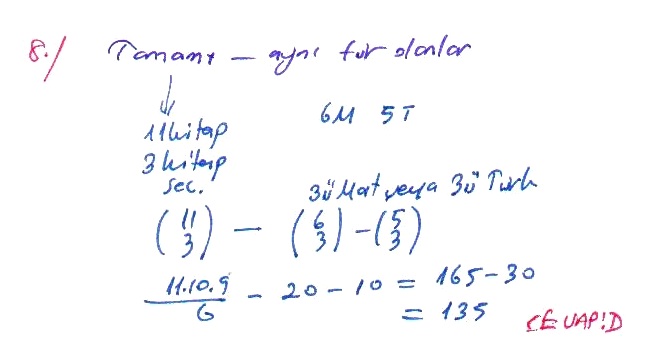 8./ Tamamı – aynı tür olanlar
11 kitap
3 kitap
seç.
6M 5T
3ü Mat veya 3ü Türk
(11 3) – (6 3) – (5 3)
11.10.9 / 6 – 20 – 10 = 165 – 30
= 135
CEVAP:D